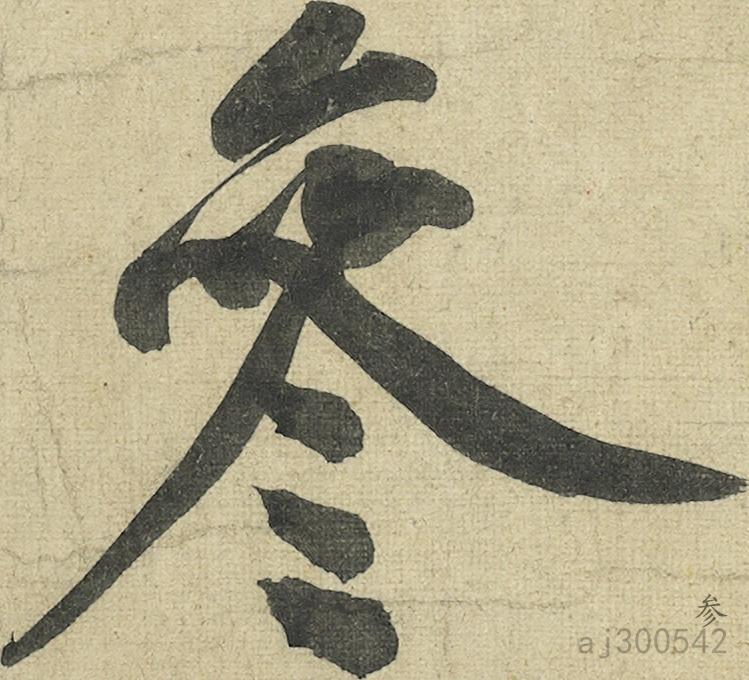 參
参
aj300542